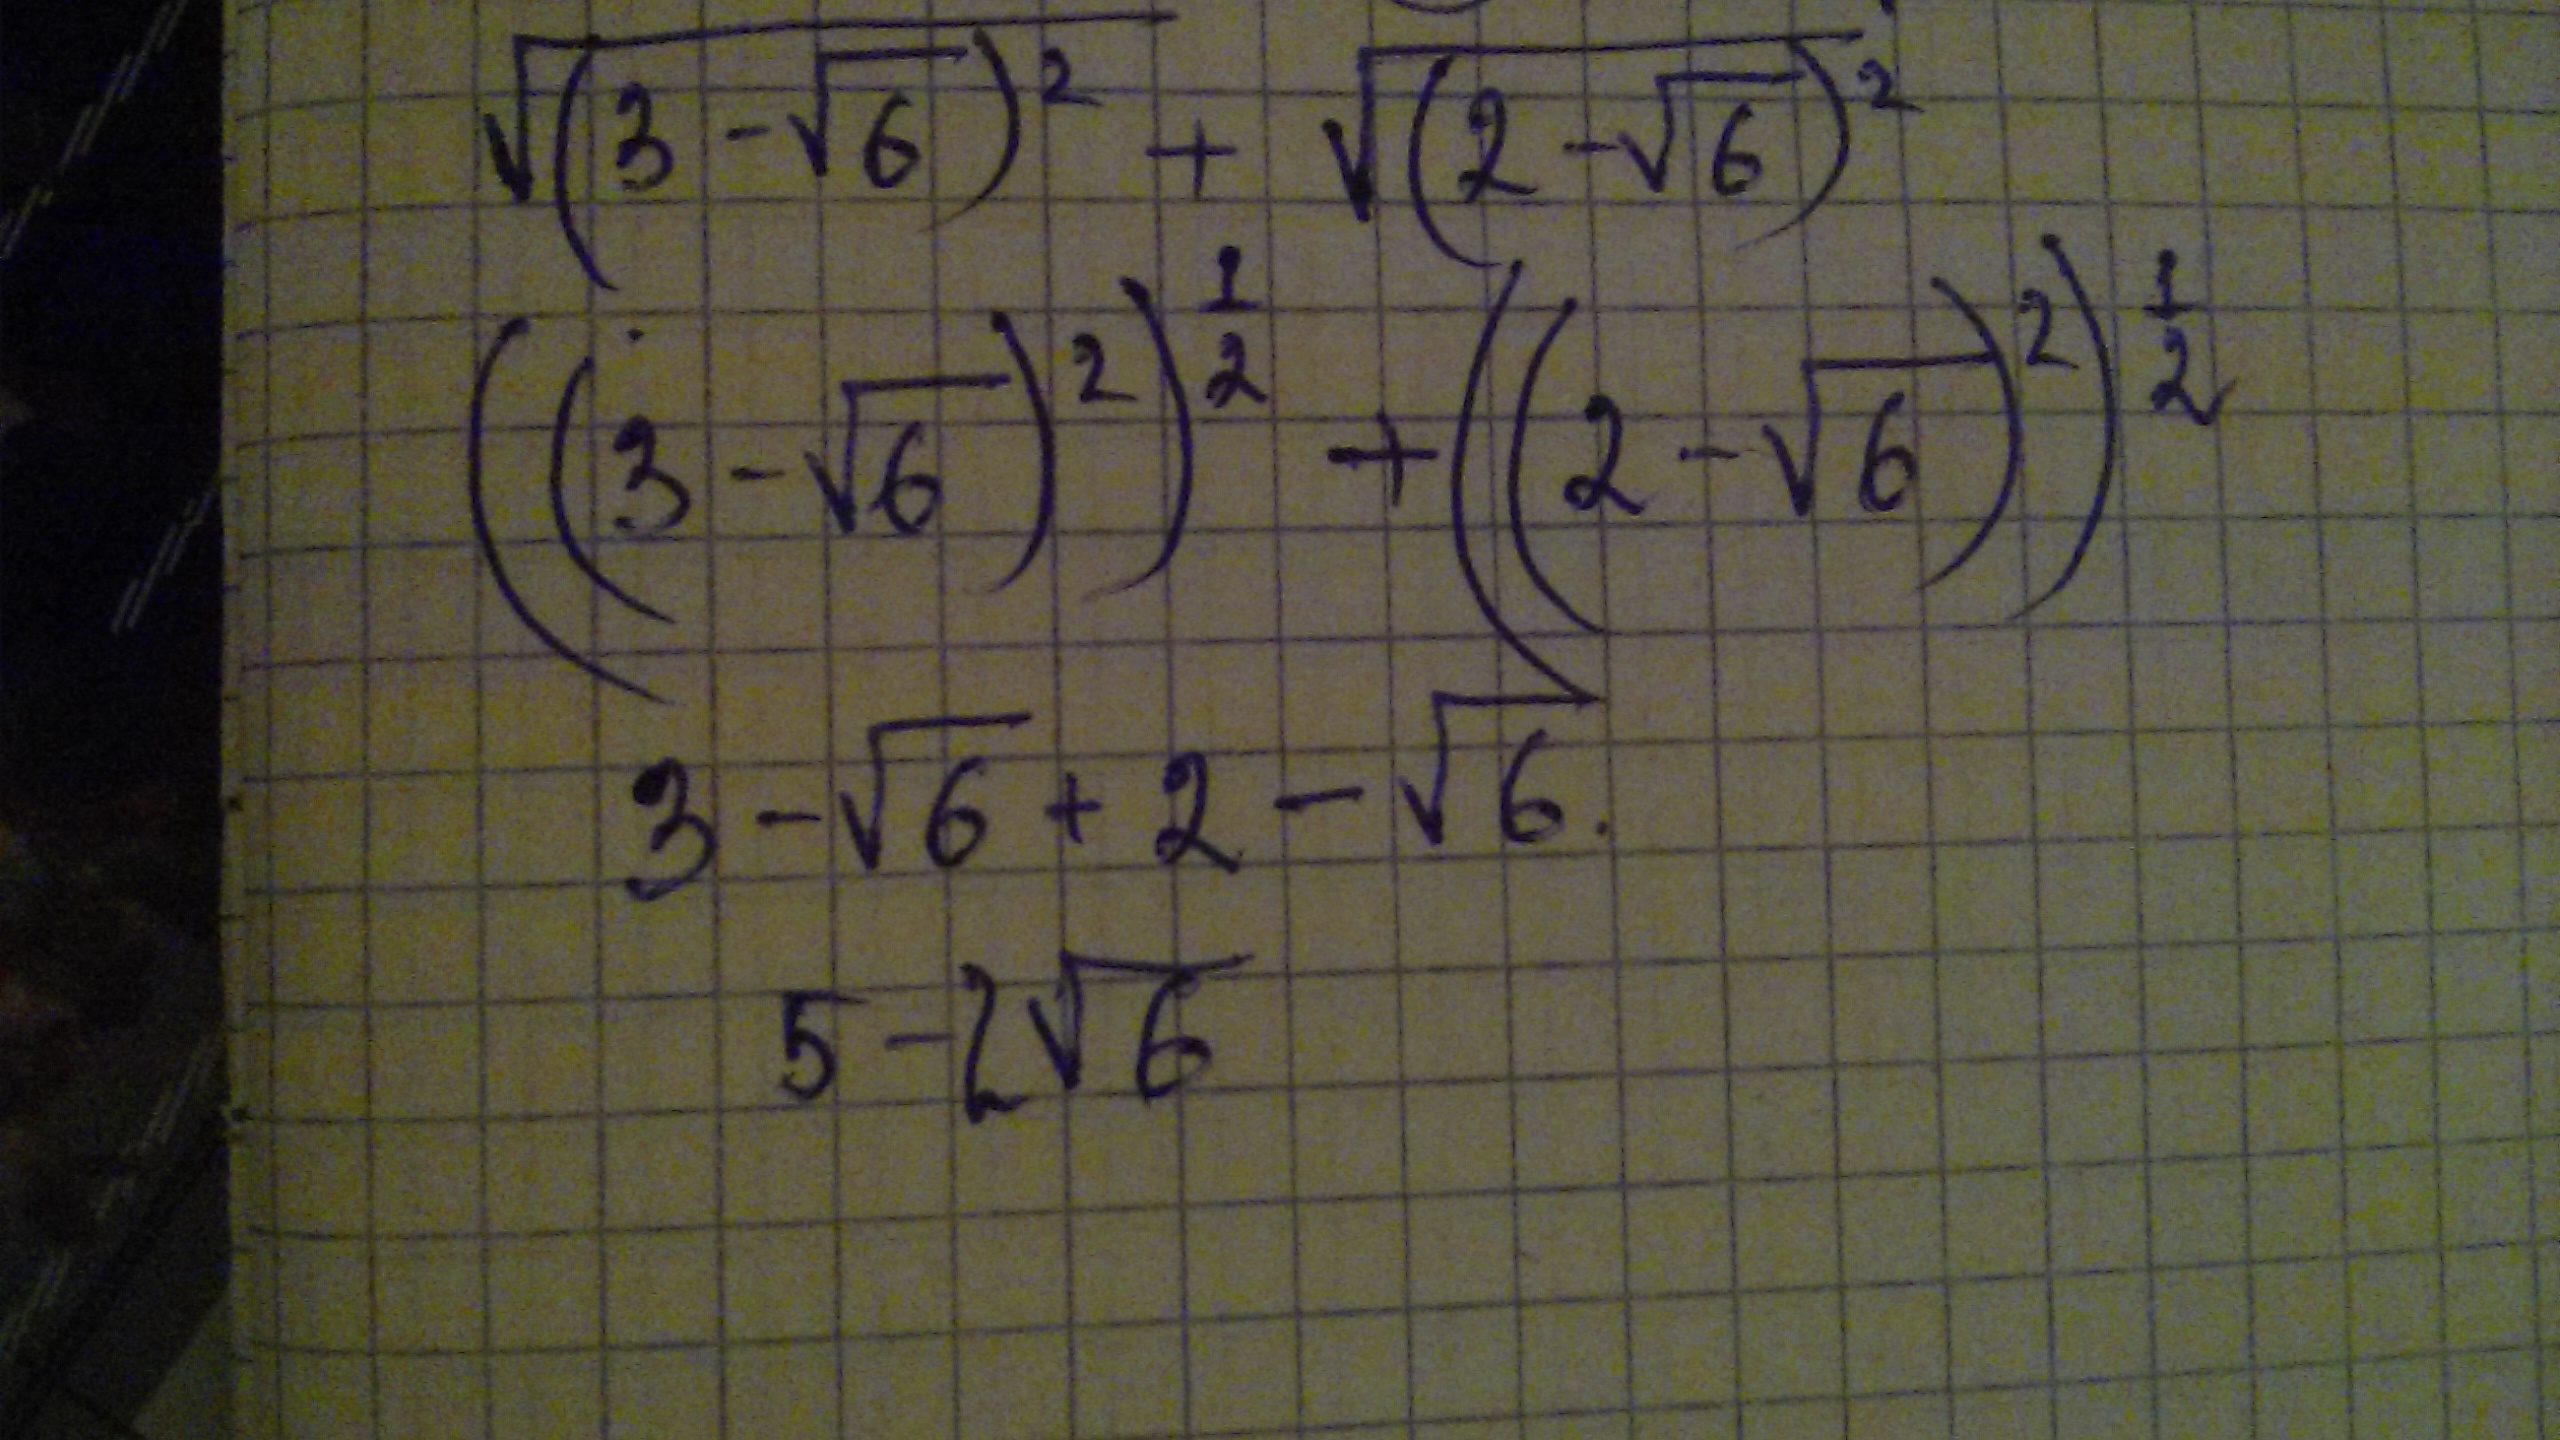 √(3-√6)² + √(2-√6)²
((3-√6)²)^(1/2) + ((2-√6)²)^(1/2)
3-√6 + 2 - √6.
5-2√6